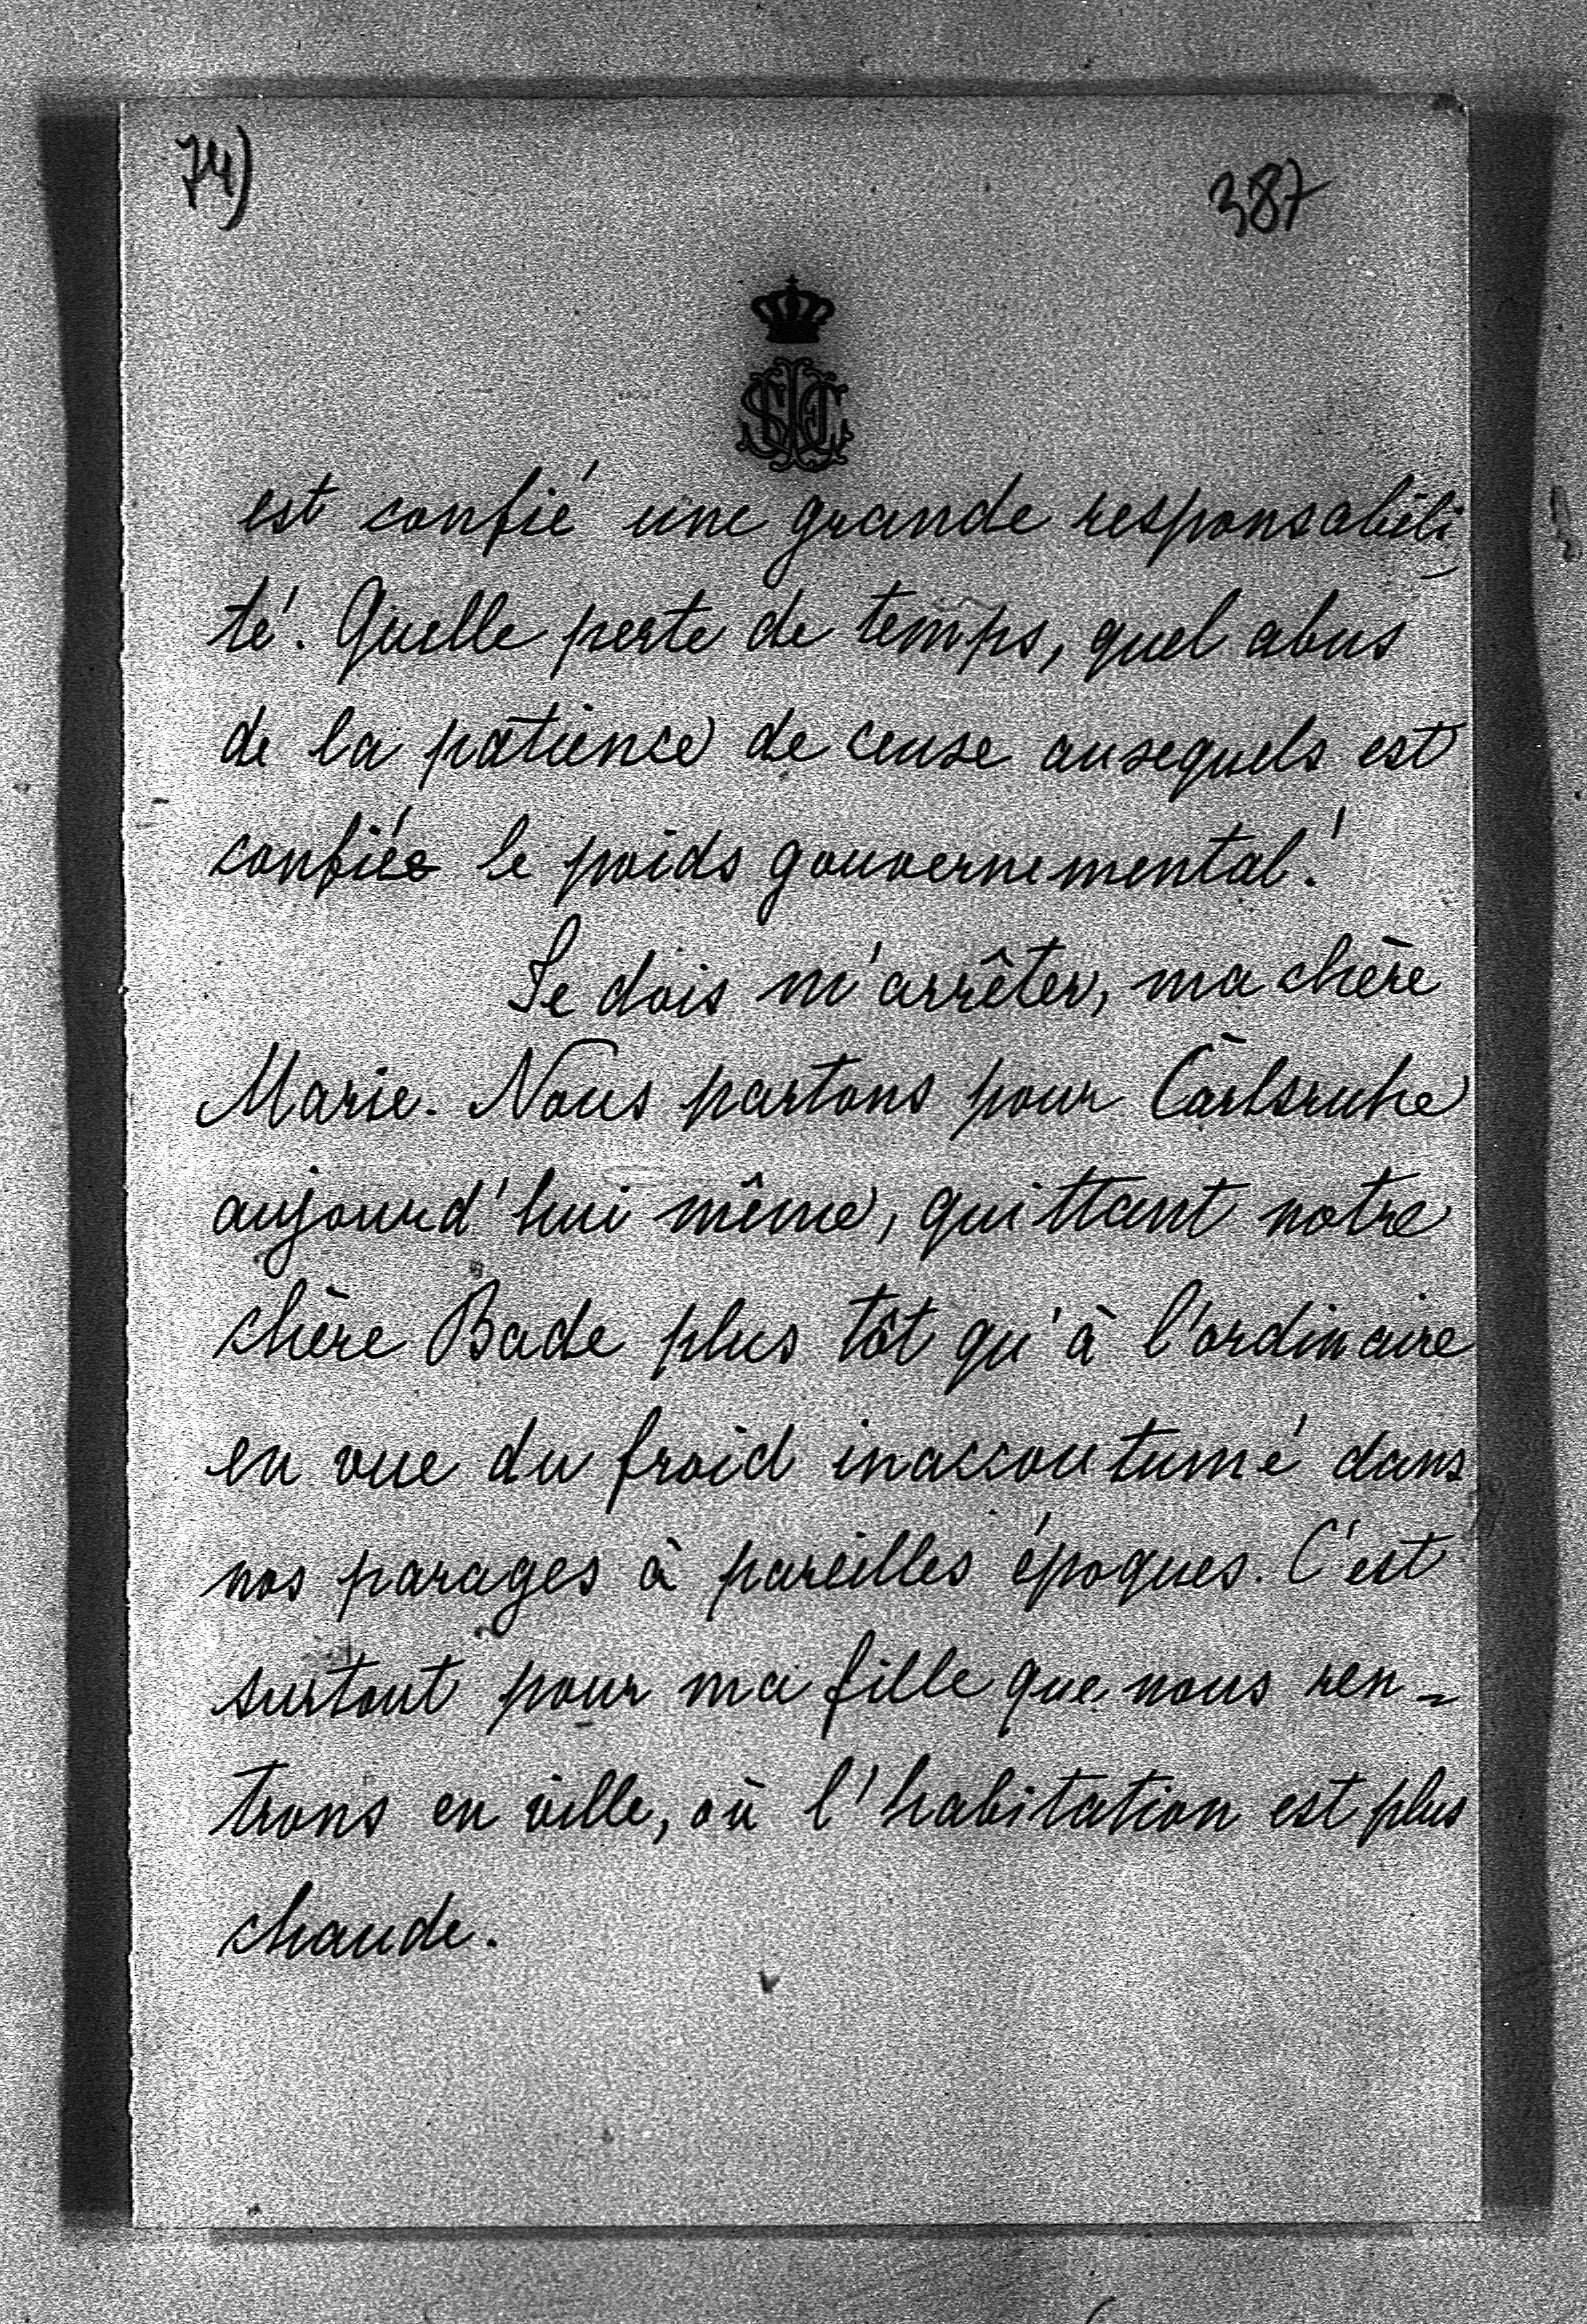 74)
387
est confié une grande responsabili-
té. Quelle perte de temps, quel abus
de la patience de ceuse ausequels est
confiés le poids gouvernemental!
Je dois m'arrêter, ma chère
Marie. Nous partons pour Carlsruhe
aujourd'hui même, quittant notre
chère Bade plus tôt qu'à l'ordinaire
en vue du froid inaccoutumé dans
nos parages à pareilles époques. C'est
surtout pour ma fille que nous ren-
trons en ville, où l'habitation est plus
chaude.